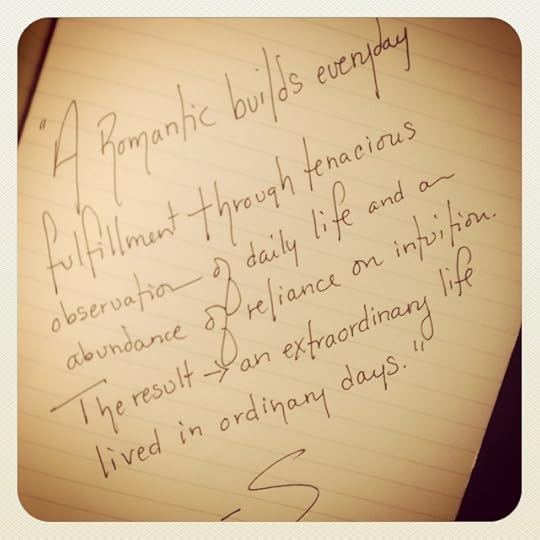 "A Romantic builds everyday
fulfillment through tenacious
observation of daily life and an
abundance of reliance on intuition.
The result → an extraordinary life
lived in ordinary days."
- S